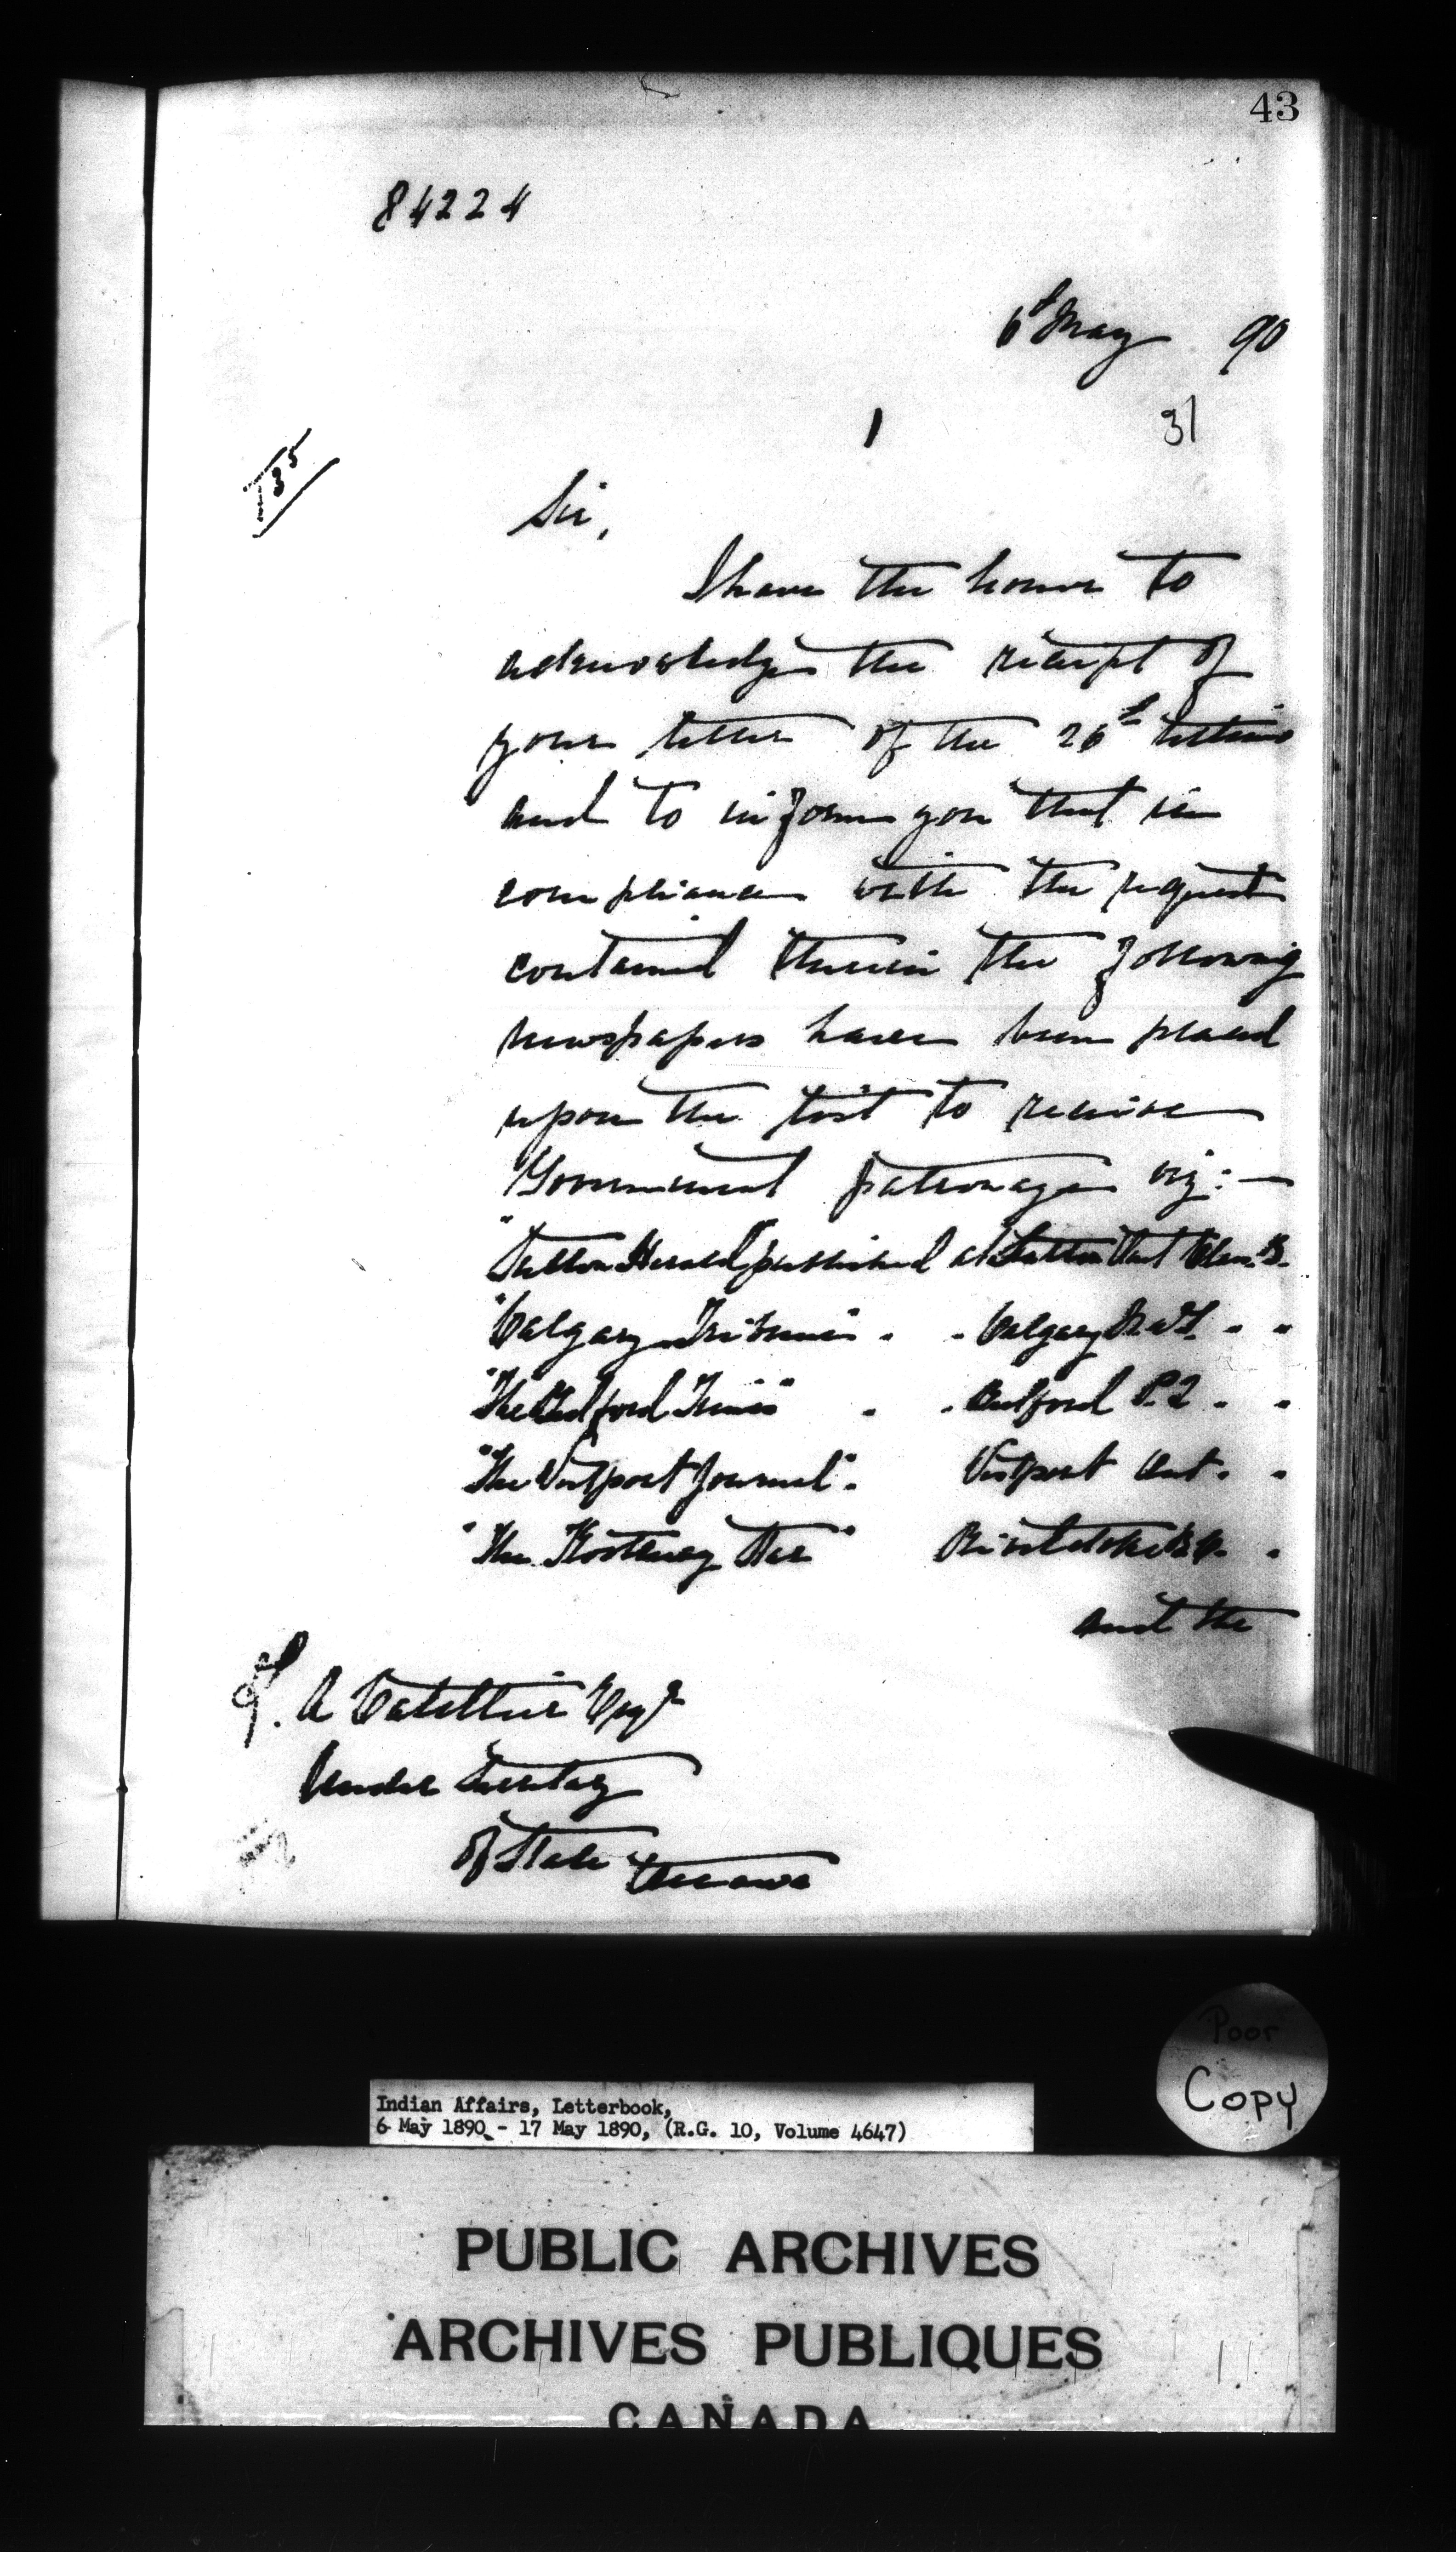 43
84224
6th May 90
1 31
135
Sir,
I have the honor to
acknowledge the receipt of
your letter of the 26th ultimo
and to inform you that in
compliance with the request
contained therein the following
newspapers have been placed
upon the list to receive
Government patronage viz:—
"Sutton Herald published at Sutton Ont
"Calgary Tribune . . Calgary N.W.T. . .
"The Bedford Times" . . Bedford P.Q. . .
"The Westport Journal" . Westport Ont. .
"The Kootenay Star" Revelstoke B.C. .
and the
L. A Catellier Esqr
Under Secretary
of State
Ottawa
Poor
Copy
Indian Affairs, Letterbook,
6 May 1890 - 17 May 1890, (R.G. 10, Volume 4647)
PUBLIC ARCHIVES
ARCHIVES PUBLIQUES
CANADA